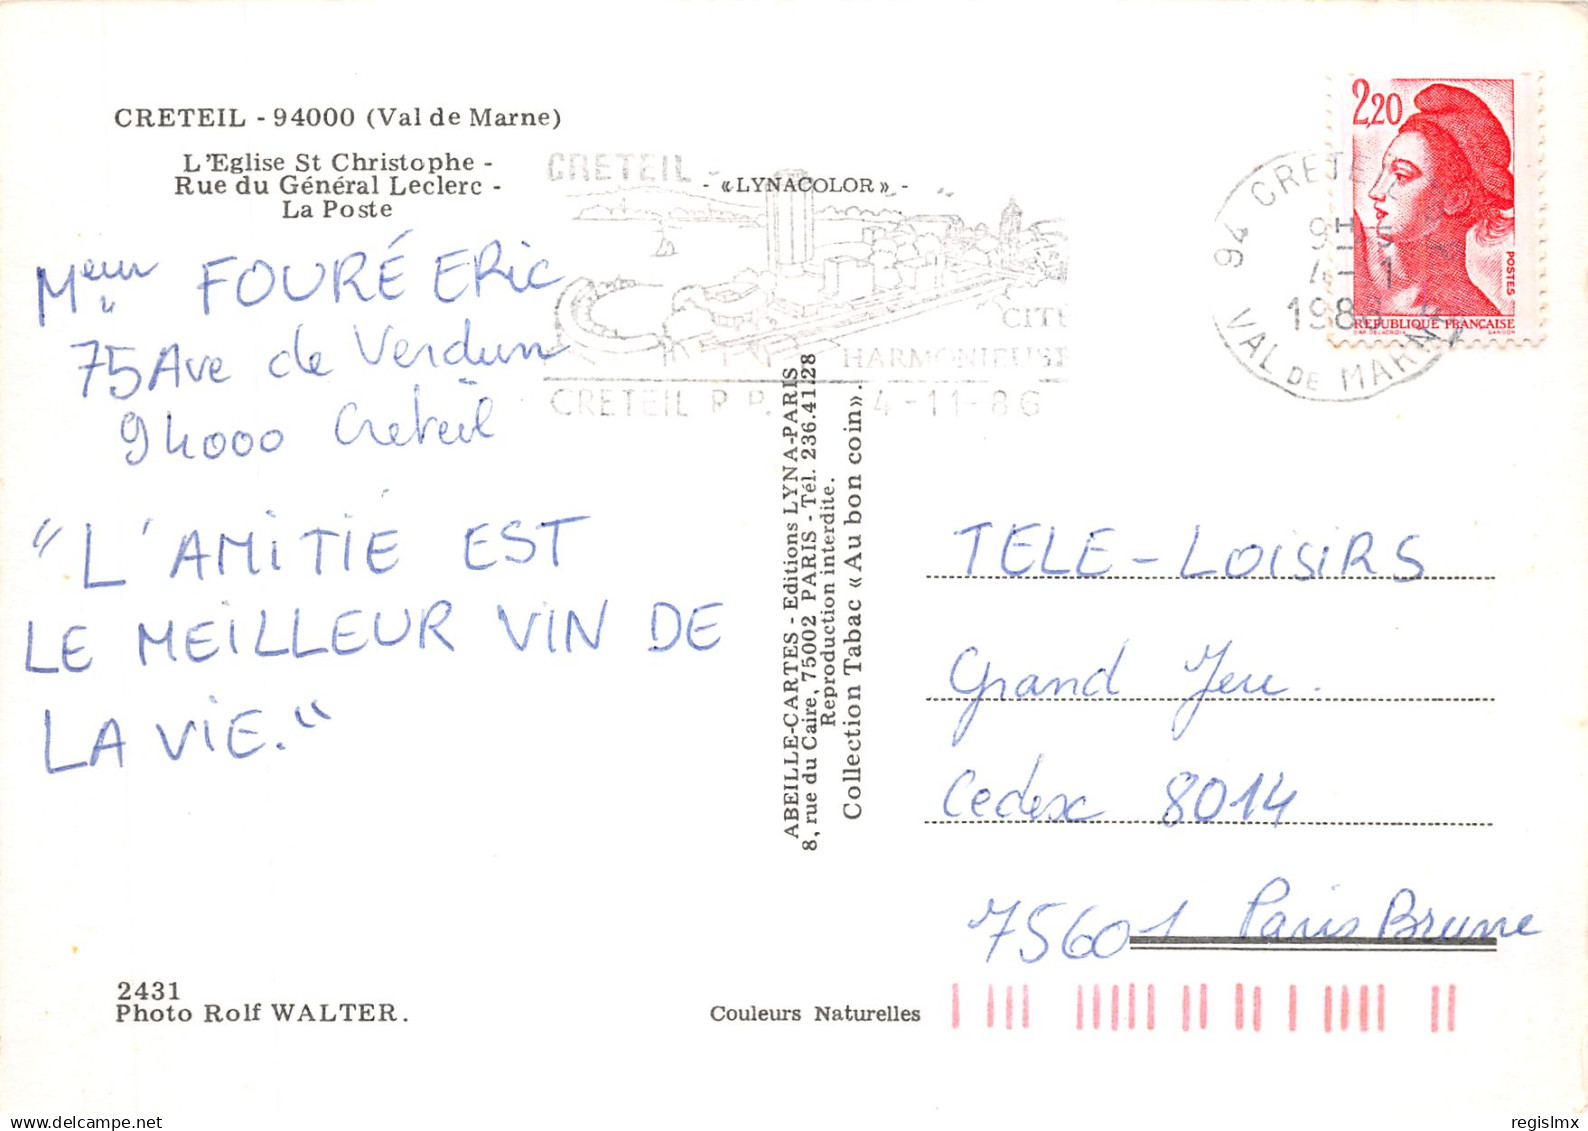 CRETEIL - 94000 (Val de Marne)
L'Eglise St Christophe -
Rue du Général Leclerc -
La Poste
CRETEIL -
- «LYNACOLOR» -
CITE
HARMONIEUSE
CRETEIL R.P. 4-11-86
2,20
POSTES
REPUBLIQUE FRANÇAISE
94 CRETEIL
9H15
4-11
1986
VAL DE MARNE
FOURÉ ERic
75 Ave de Verdun
94000 Créteil
"L'AMiTiÉ EST
LE MEiLLEUR ViN DE
LA ViE."
ABEILLE-CARTES - Editions LYNA-PARIS
8, rue du Caire, 75002 PARIS - Tél. 236.41.28
Reproduction interdite.
Collection Tabac «Au bon coin».
TELE-LOiSiRS
Grand Jeu.
Cedex 8014
75601 Paris Brune
2431
Photo Rolf WALTER.
Couleurs Naturelles
regislmx